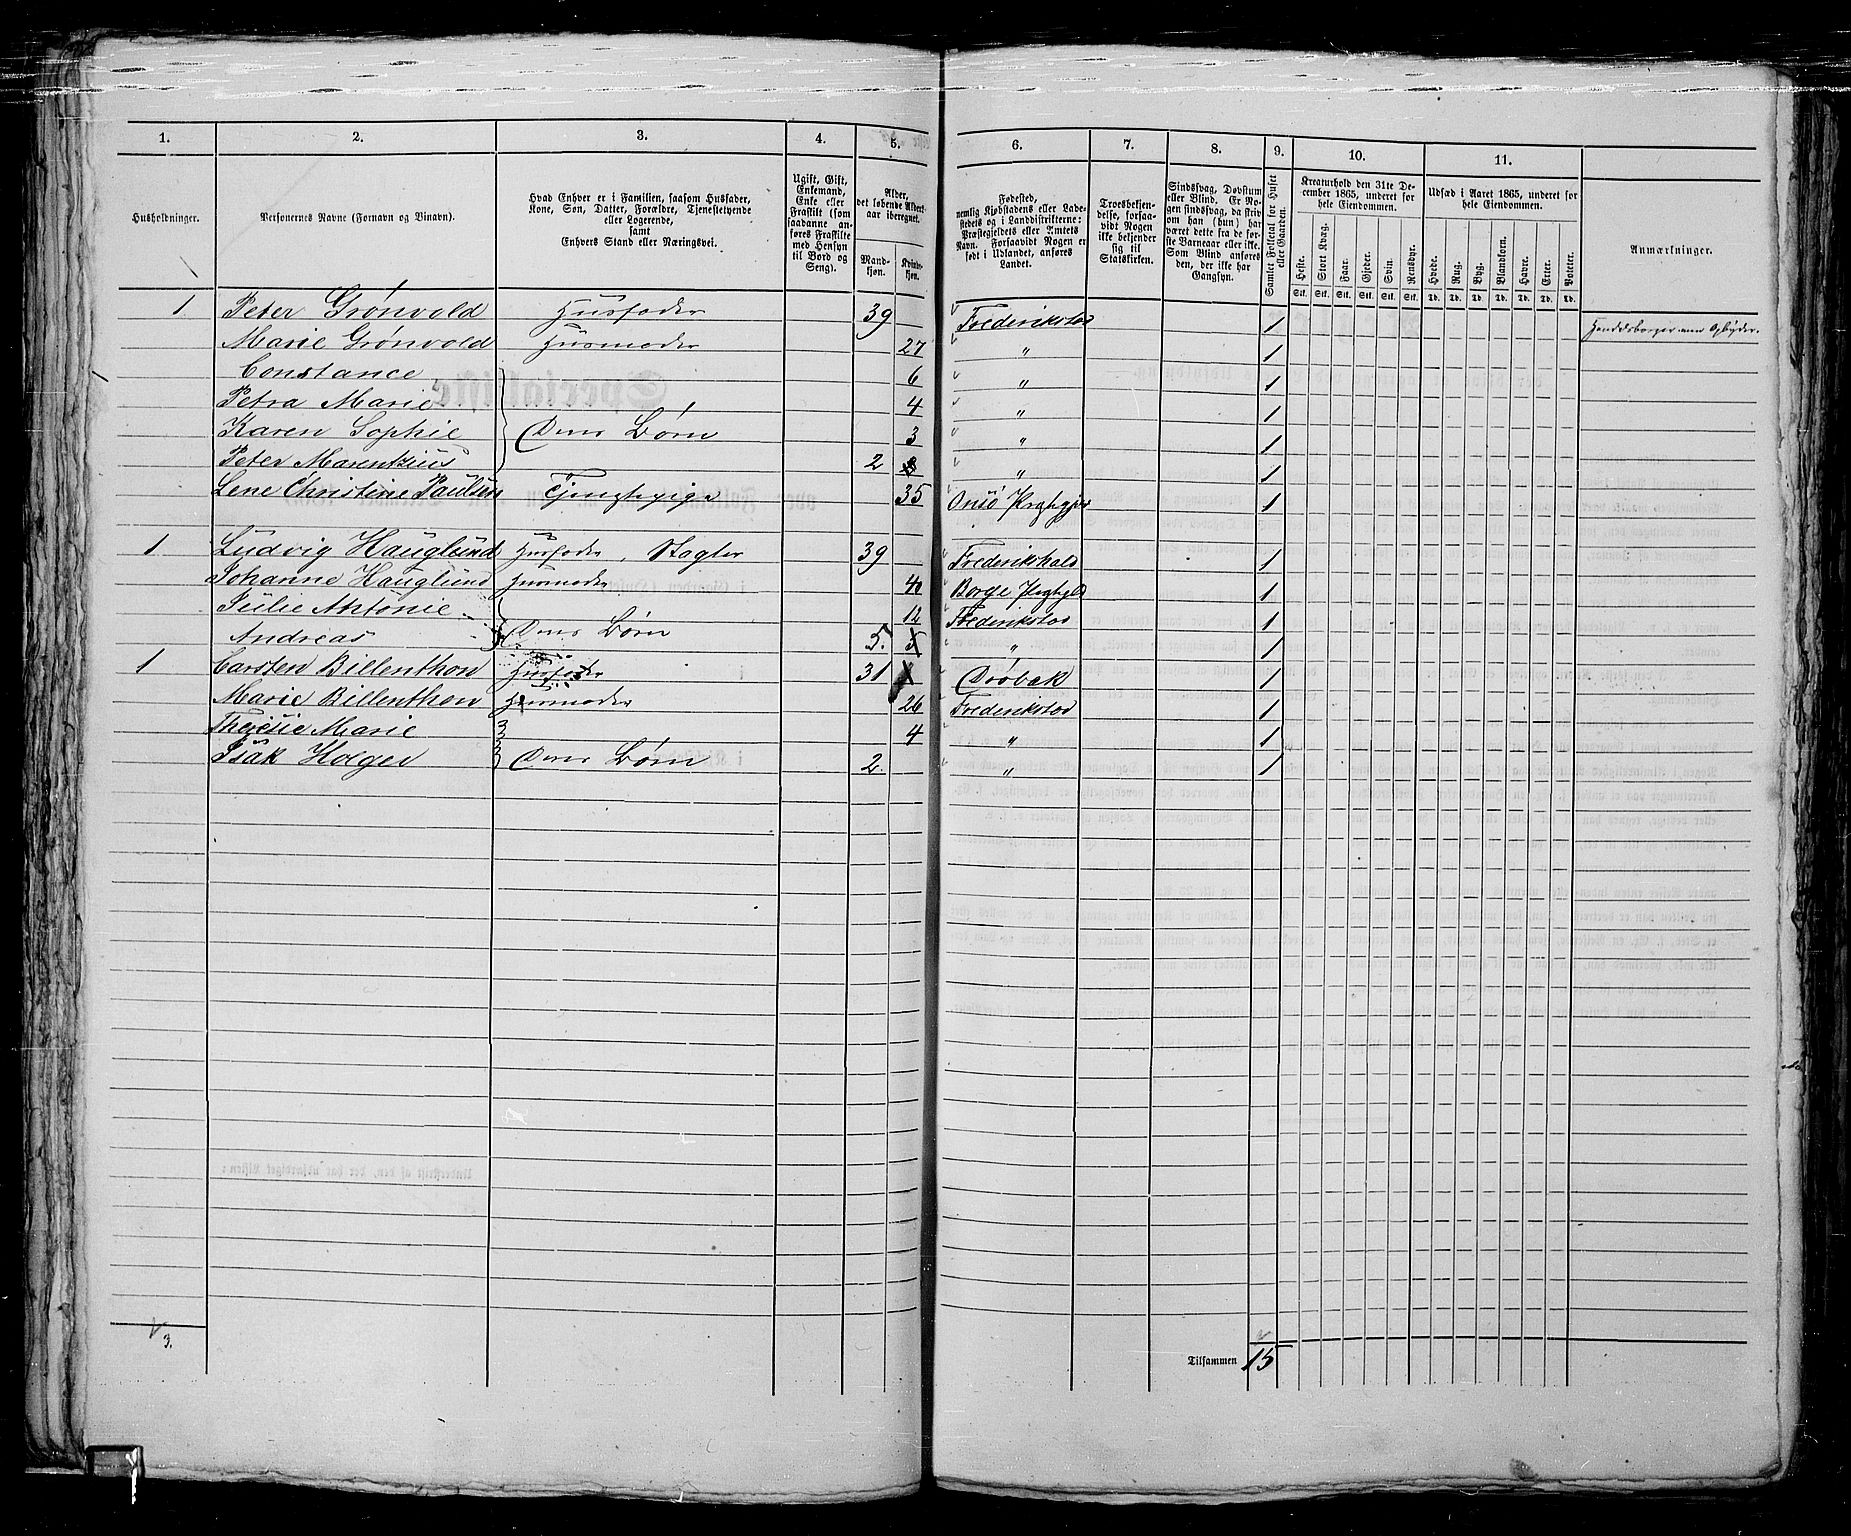 1. 2. 3. 4. 5. 6. 7. 8. 9. 10. 11.
Husholdninger.
Personernes Navne (Fornavn og Tilnavn).
Hvad Enhver er i Familien, saasom Husfader,
Kone, Søn, Datter, Forældre, Tjenestetyende
eller Logerende,
samt
Enhvers Stand eller Næringsvei.
Ugift, Gift,
Enkemand,
Enke eller
Fraskilt (som
saadanne an-
føres Fraskilte
med Hensyn
til Bord og
Seng).
Alder,
det løbende Alders-
aar iberegnet.
Mand-
kjøn.
Kvinde-
kjøn.
Fødested,
nemlig Kjøbstadens eller Lade-
stedets og i Landdistrikterne:
Præstegjeldets eller Amtets
Navn. Forsaavidt Nogen er
født i Udlandet, anføres
Landet.
Troesbekjen-
delse, forsaa-
vidt Nogen
ikke bekjender
sig til
Statskirken.
Sindssvag, Døvstum
eller Blind. Er No-
gen sindssvag, da skriv
om han (hun) har
været dette fra de før-
ste Barneaar eller ikke.
Som Blind anføres
den, der ikke har
Gangsyn.
Samlet Folketal for Huset
eller Gaarden.
Kreaturhold den 31te De-
cember 1865, underet for
hele Eiendommen.
Heste. Stort Kvæg. Faar. Gjeder. Svin. Rensdyr.
Stk. Stk. Stk. Stk. Stk. Stk.
Udsæd i Aaret 1865, underet for
hele Eiendommen.
Hvede. Rug. Byg. Blandkorn. Havre. Erter. Poteter.
Td. Td. Td. Td. Td. Td. Td.
Anmærkninger.
1 Peter Grønvold Husfader 39 Frederikstad 1
Marie Grønvold Husmoder 27 " 1
Constance 6 " 1
Petra Marie 4 " 1
Karen Sophie Deres Børn 3 " 1
Peter Marentzius 2 " 1
Lene Christine Paulsen Tjenstepige 35 Onsö Prstgjæ 1
1 Ludvig Hauglund Husfader, Slagter 39 Frederikshald 1
Johanne Hauglund Husmoder 40 Borge Prstgld 1
Julie Antonie 12 Frederikstad 1
Andreas Deres Børn 5. " 1
1 Carsten Billenthon Husfader 31 Drøbak 1
Marie Billenthon Husmoder 26 Frederikstad 1
Marie 4 " 1
Isak Holger Deres Børn 2. " 1
3.
Tilsammen 15